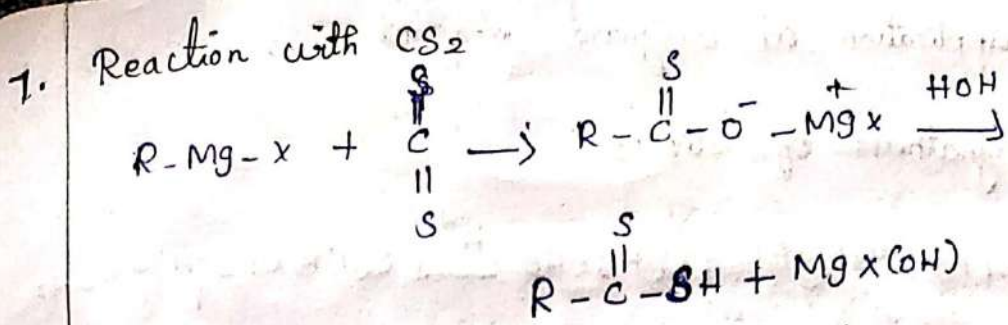 7. Reaction with CS2
S
||
R-Mg-X + C → R-C-O⁻-Mg⁺X HOH →
||
S
S
||
R-C-SH + MgX(OH)